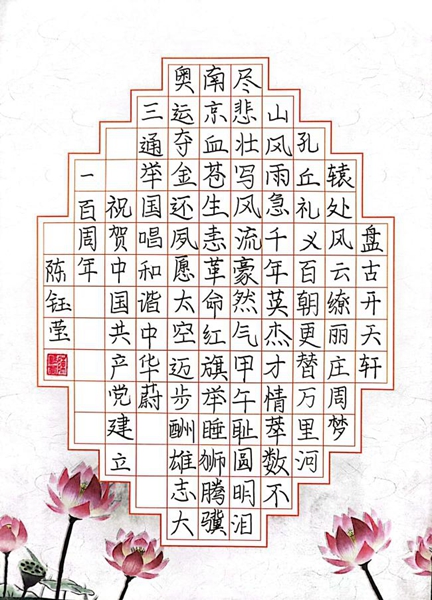 盘古开天轩
辕处风云缭丽庄周梦
孔丘礼义百朝更替万里河
山风雨急千年英杰才情萃数不
尽悲壮写风流豪然气甲午耻圆明泪
南京血苍生恚革命红旗举睡狮腾骥
奥运夺金还夙愿太空迈步酬雄志大
三通举国唱和谐中华蔚
祝贺中国共产党建立
一百周年
陈钰莹